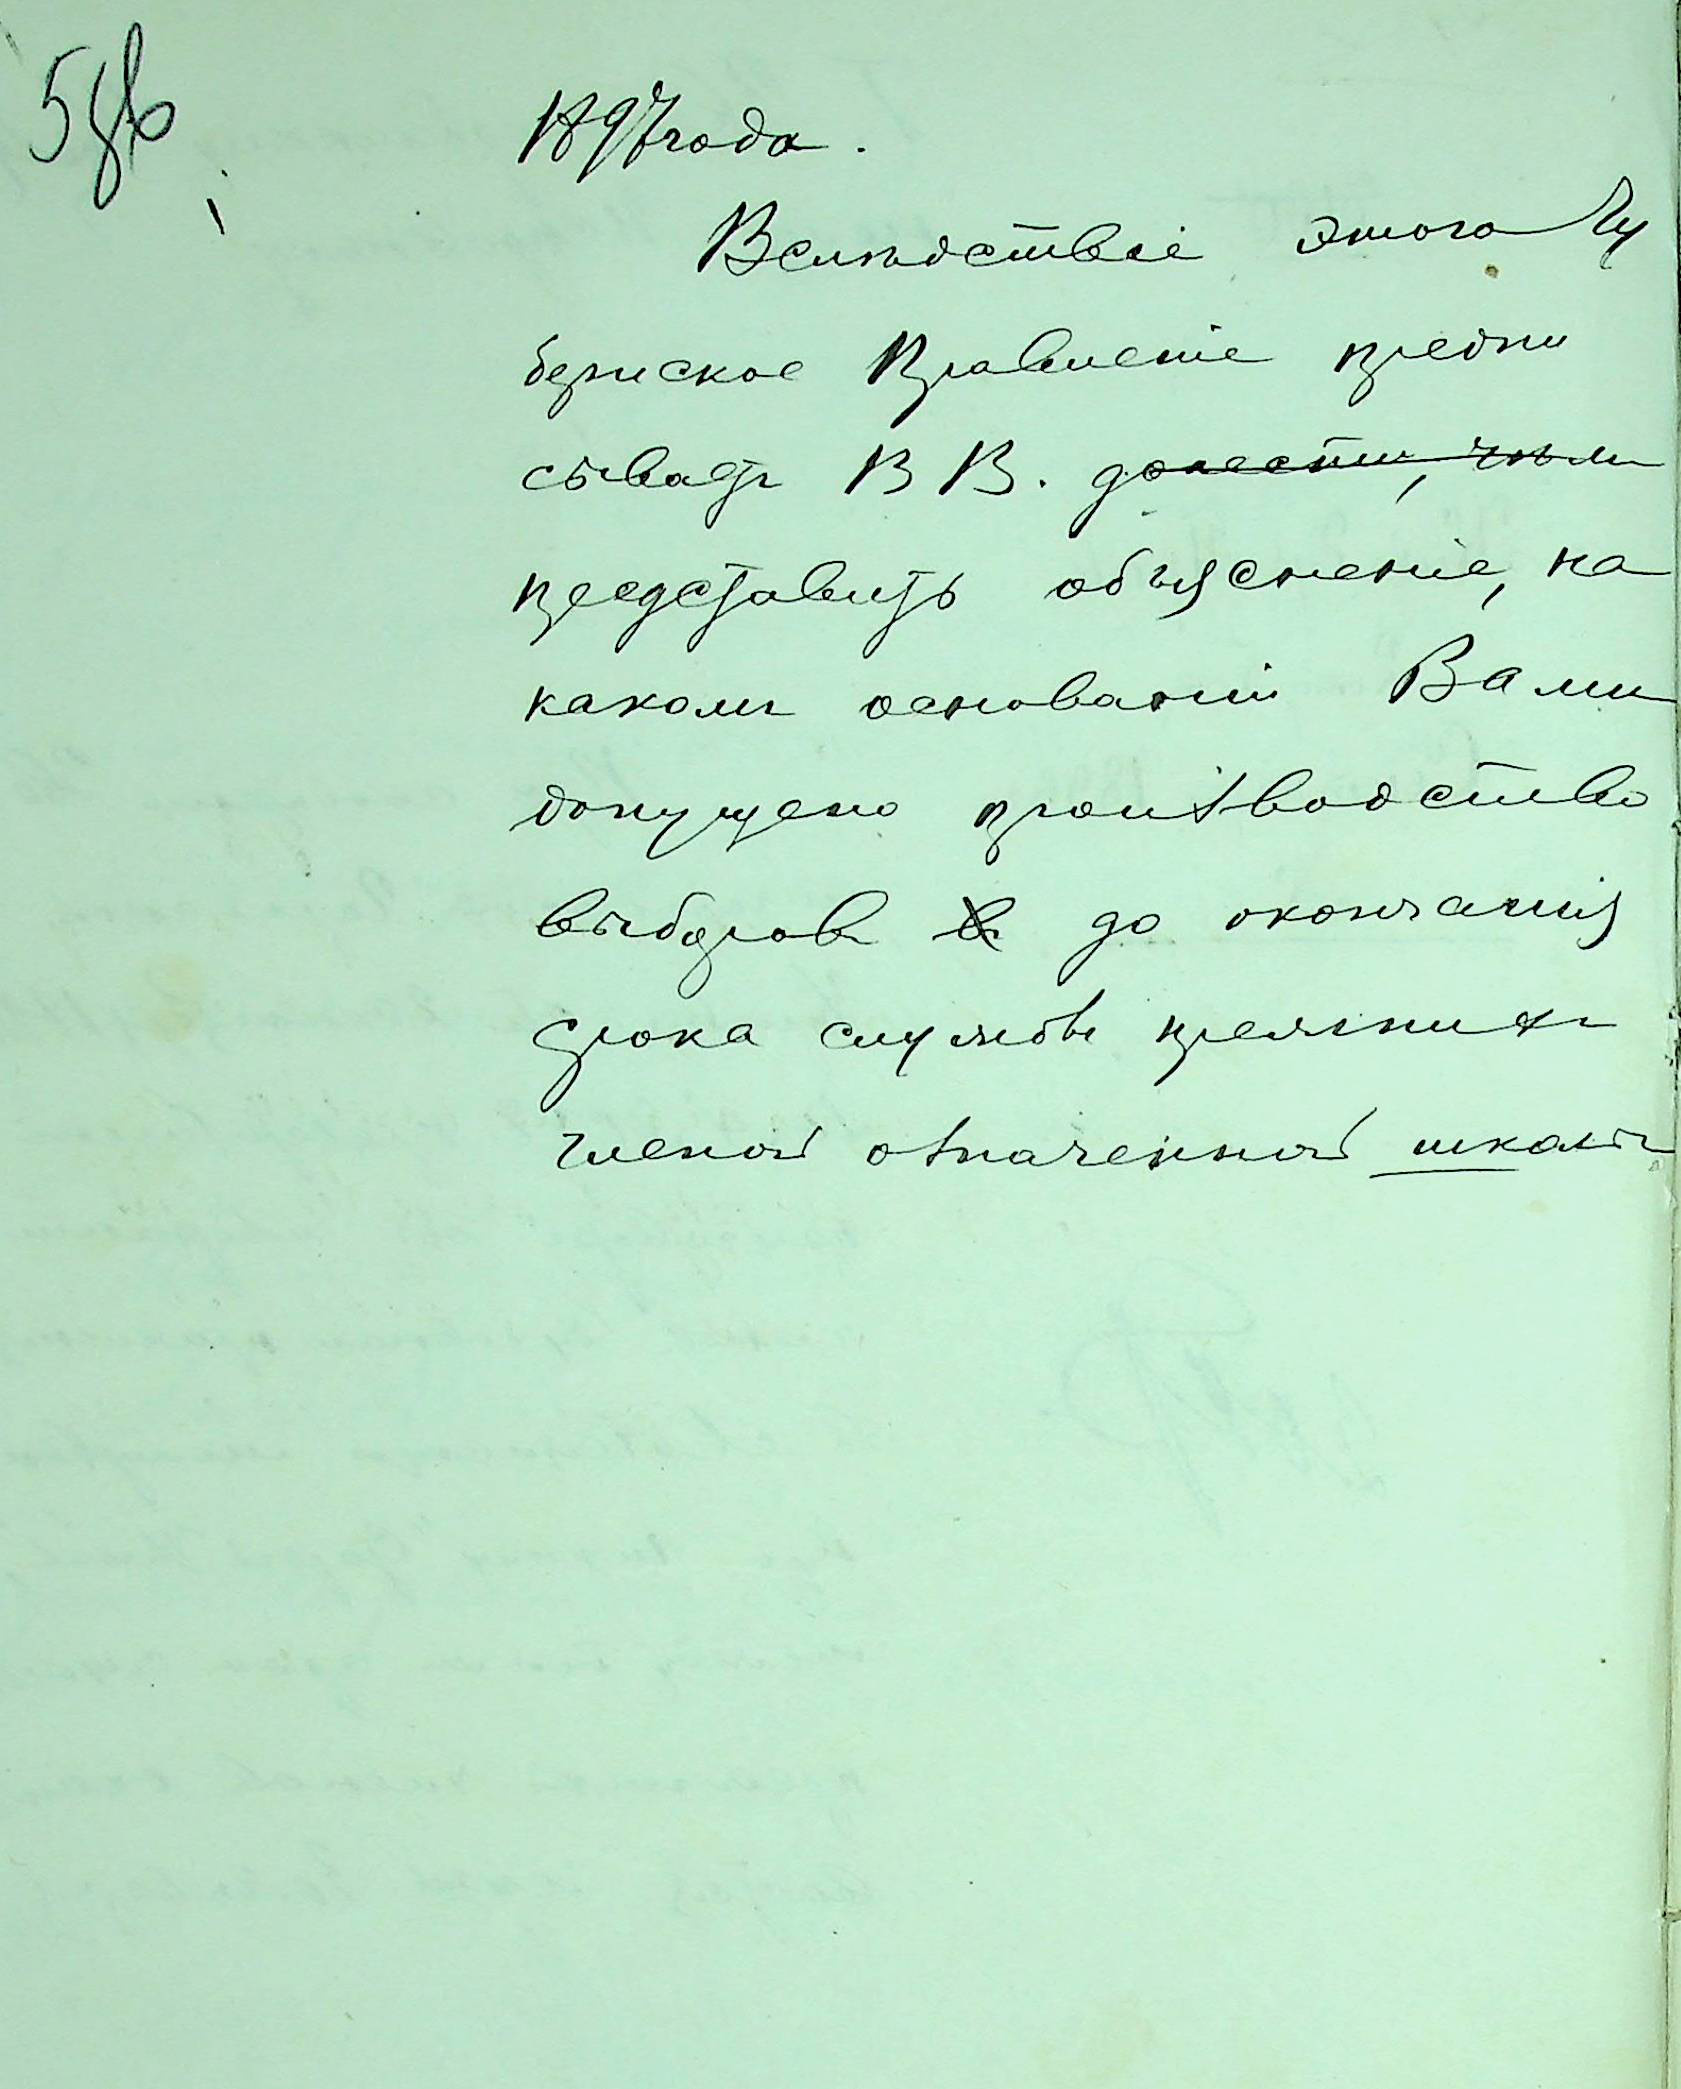 1897 года.
Вслѣдствіе этого Гу
бернское Правленіе предпи
сываетъ В В. донести, чѣмъ
представить объясненіе, на
какомъ основаніи Вами
допущено производство
выборовъ въ до окончанія
срока службы прежнихъ
членовъ означенной школы